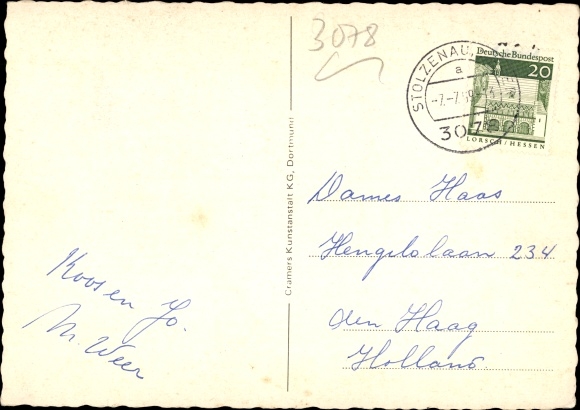 3078
STOLZENAU,
a
-7.-7.69
307
Deutsche Bundespost
20
LORSCH/HESSEN
Cramers Kunstanstalt KG, Dortmund
Dames Haas
Hengelolaan 234
den Haag
Holland.
Koos en Jo.
M. Weer